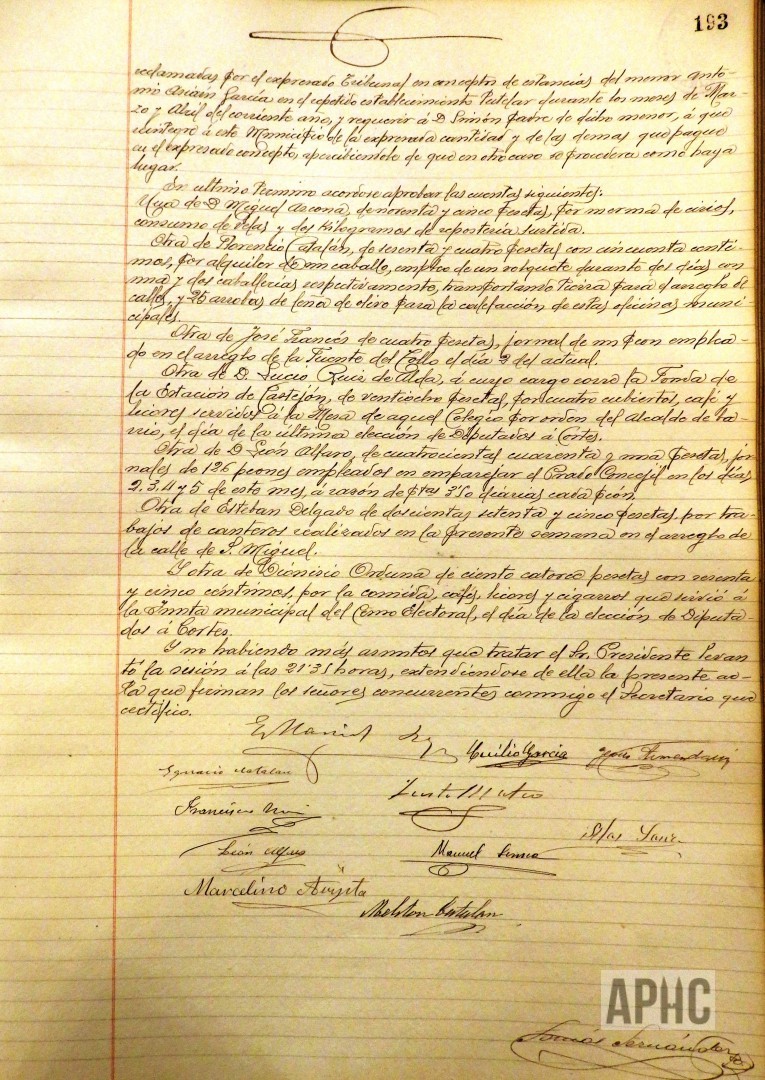 193
reclamadas por el expresado Tribunal en concepto de estancias del menor Anto-
nio Asiain García en el repetido establecimiento tutelar durante los meses de Mar-
zo y Abril del corriente año, y requerir á D. Simón padre de dicho menor, á que
reintegre á este Municipio de la expresada cantidad y de las demas que pague
en el expresado concepto, apercibiendole de que en otro caso se procederá como haya
lugar.
En ultimo termino acordose aprobar las cuentas siguientes:
Una de D. Miguel Ascona, de noventa y cinco pesetas, por merma de cirios,
consumo de velas y dos kilogramos de reposteria surtida.
Otra de Florencio Catalán, de sesenta y cuatro pesetas con cincuenta centi-
mos, por alquiler de un caballo, empleo de un volquete durante dos días con
una y dos caballerias respectivamente, transportando tierra para el arreglo de
calles, y 25 arrobas de leña de olivo para la calefacción de estas oficinas muni-
cipales.
Otra de José Francés de cuatro pesetas, jornal de un peon emplea-
do en el arreglo de la Fuente del el día 3 del actual.
Otra de D. Lucio Ruiz de Alda, á cuyo cargo corre la Fonda de
la Estación de Castejón, de veintiocho pesetas, por cuatro cubiertos, café y
licores servidos á la Mesa de aquel Colegio por orden del Alcalde de ba-
rrio, el día de la última elección de Diputados á Cortes.
Otra de D. León Alfaro, de cuatrocientas cuarenta y una pesetas, jor-
nales de 126 peones empleados en emparejar el Prado Concejil en los días
2, 3, 4 y 5 de este mes, á razón de ptas 3'50 diarias cada peón.
Otra de Esteban Delgado de doscientas setenta y cinco pesetas, por tra-
bajos de canteros realizados en la presente semana en el arreglo de
la calle de S. Miguel.
Y otra de Dionisio Orduna de ciento catorce pesetas con
y cinco centimos, por la comida, cafés, licores y cigarros que sirvió á
la Junta municipal del Censo Electoral, el día de la elección de Diputa-
dos á Cortes.
Y no habiendo más asuntos que tratar el Sr. Presidente levan
tó la sesión á las 21'35 horas, extendiendose de ella la presente ac-
ta que firman los señores concurrentes conmigo el Secretario que
certifico.
Emilio García
Ignacio Catalan
Justo Mateo
Francisco
Blas
León Alfaro
Manuel
Marcelino Azpeita
Meliton Catalan
APHC
Tomás Fernández